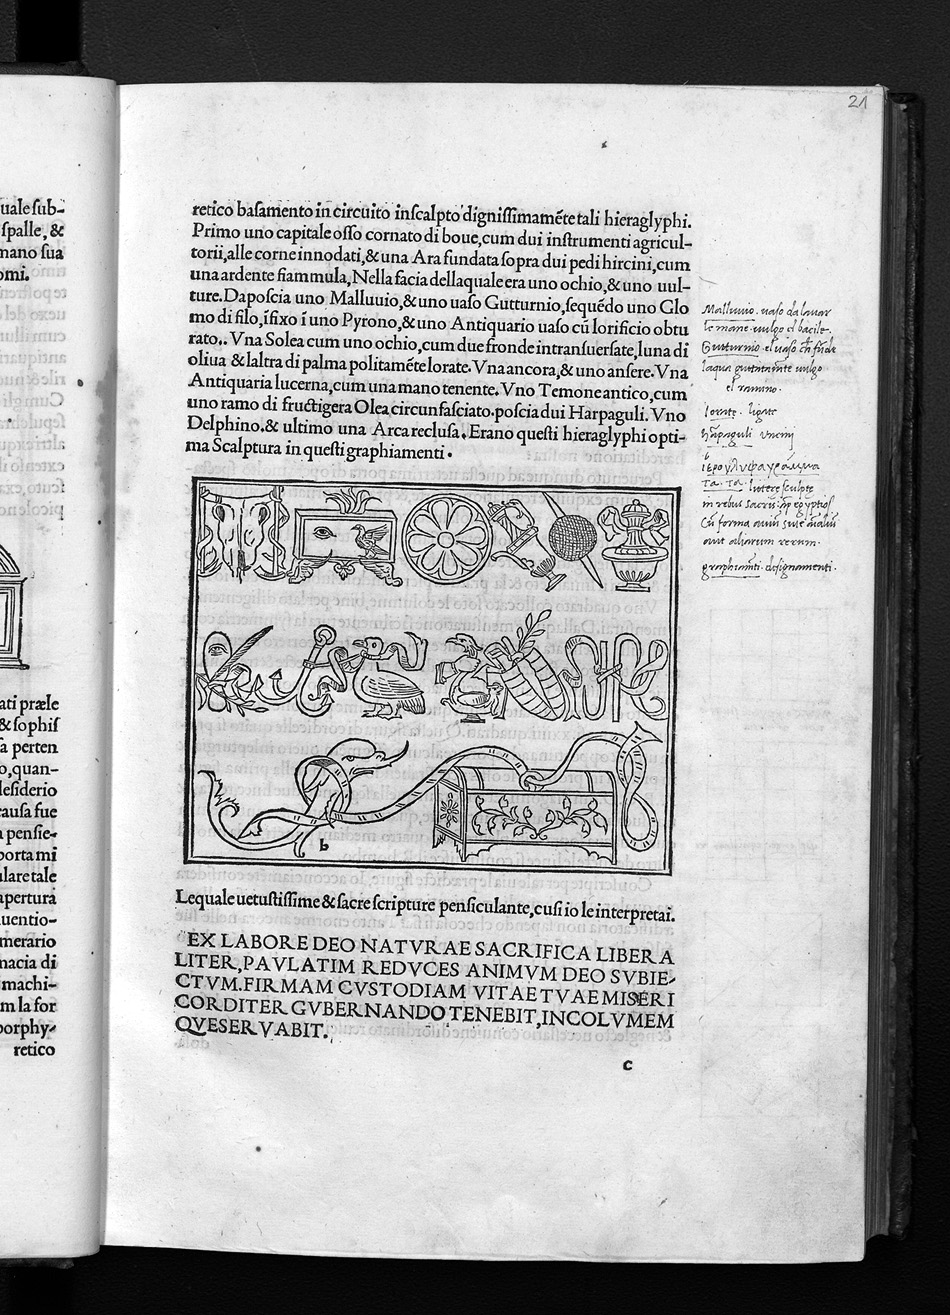 uale sub-
spalle, &
mano sua
omi.
ati præle
& sophis
sa perten
o, quan-
desiderio
causa fue
a pensie-
porta mi
ulare tale
apertura
uentio-
merario
macia di
machi-
m la for
porphy-
retico
21
retico basamento in circuito inscalpto dignissimamẽte tali hieraglyphi.
Primo uno capitale osso cornato di boue, cum dui instrumenti agricul-
torii, alle corne innodati, & una Ara fundata sopra dui pedi hircini, cum
una ardente fiammula, Nella facia dellaquale era uno ochio, & uno uul-
ture. Daposcia uno Malluuio, & uno uaso Gutturnio, sequẽdo uno Glo
mo di filo, ĩfixo ĩ uno Pyrono, & uno Antiquario uaso cũ lorificio obtu
rato,. Vna Solea cum uno ochio, cum due fronde intransuersate, luna di
oliua & laltra di palma politamẽte lorate. Vna ancora, & uno ansere. Vna
Antiquaria lucerna, cum una mano tenente. Vno Temone antico, cum
uno ramo di fructigera Olea circunfasciato. poscia dui Harpaguli. Vno
Delphino. & ultimo una Arca reclusa. Erano questi hieraglyphi opti-
ma Scalptura in questi graphiamenti.
b
Lequale uetustissime & sacre scripture pensiculante, cusi io le interpretai.
EX LABORE DEO NATVRAE SACRIFICA LIBERA
LITER, PAVLATIM REDVCES ANIMVM DEO SVBIE-
CTVM. FIRMAM CVSTODIAM VITAE TVAE MISERI
CORDITER GVBERNANDO TENEBIT, INCOLVMEM
QVE SERVABIT.
c
Malluuio. uaso da lauar
le mane uulgo el bacile.
Gutturnio. el uaso
laqua uulgo
el ramino.
lorate. ligate
harpaguli uncini
ιερογλυφα γραμμα
τα. littere sculpte
in rebus sacris
forma
aut aliarum rerum.
graphiamenti. designamenti.